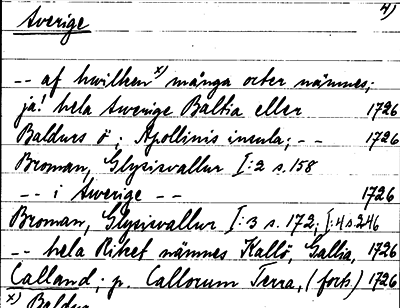 4)
Sverige
-- af hwilken x) många orter nämnes;
ja! hela Swerige Baltia eller 1726
Baldurs ö : Apollinis insula; -- 1726
Broman, Glysisvallur I:2 s.158
-- i Swerige -- 1726
Broman, Glysisvallur I:3 s. 172; I:4 s.246
-- hela Riket nämnes Kallö, Gallia, 1726
Calland; p. Callorum Terra, (forts.) 1726
x) Baldur